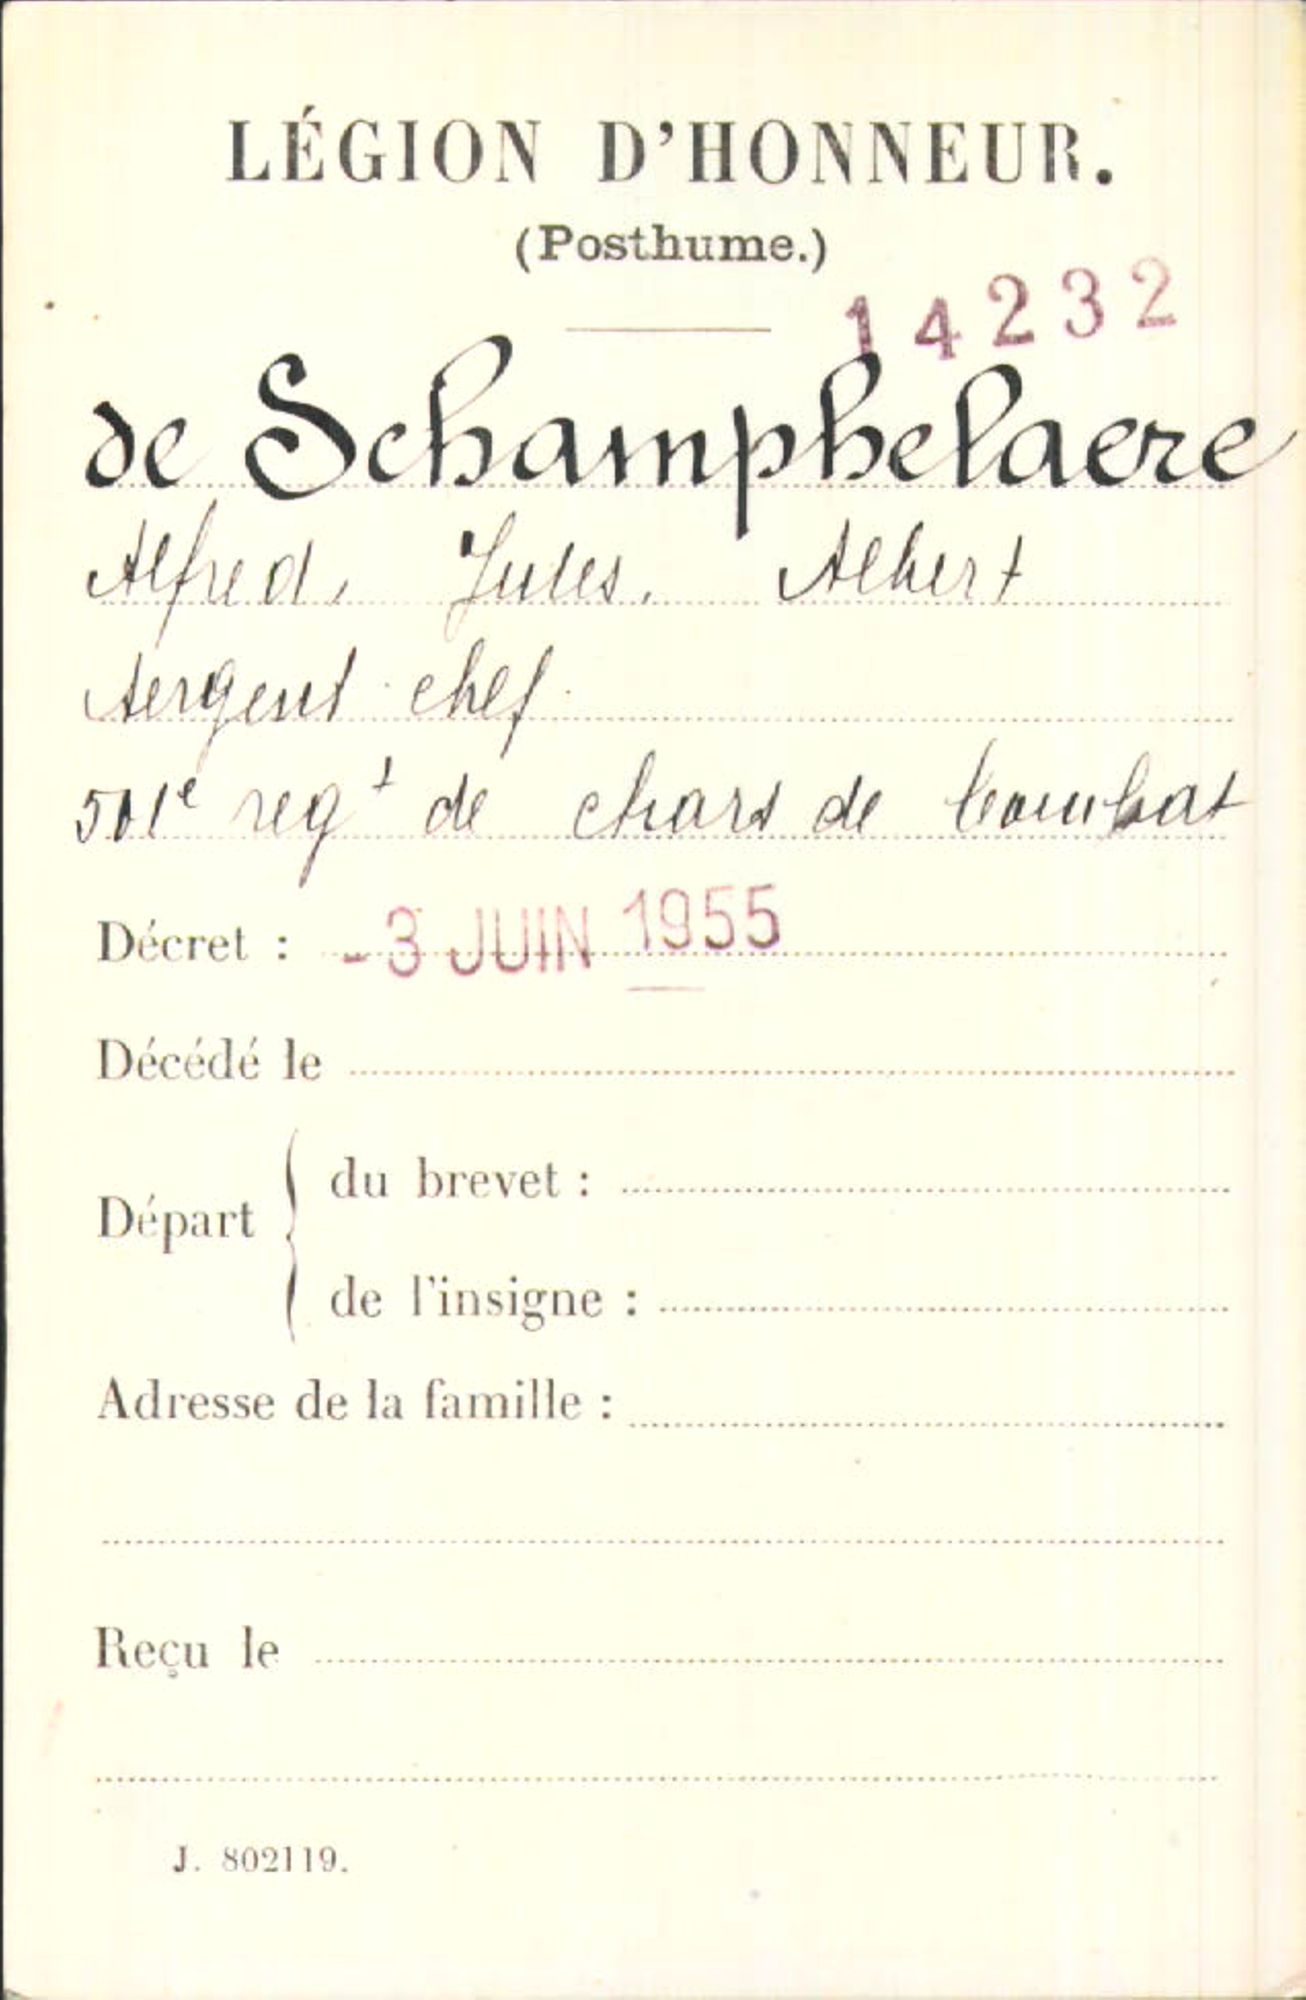 LÉGION D'HONNEUR.
(Posthume.)
14232
de Schamphelaere
Alfred, Jules, Albert
Sergent-chef
501e regt de chars de Combat
Décret : -3 JUIN 1955
Décédé le
Départ
du brevet :
de l'insigne :
Adresse de la famille :
Reçu le
J. 802119.